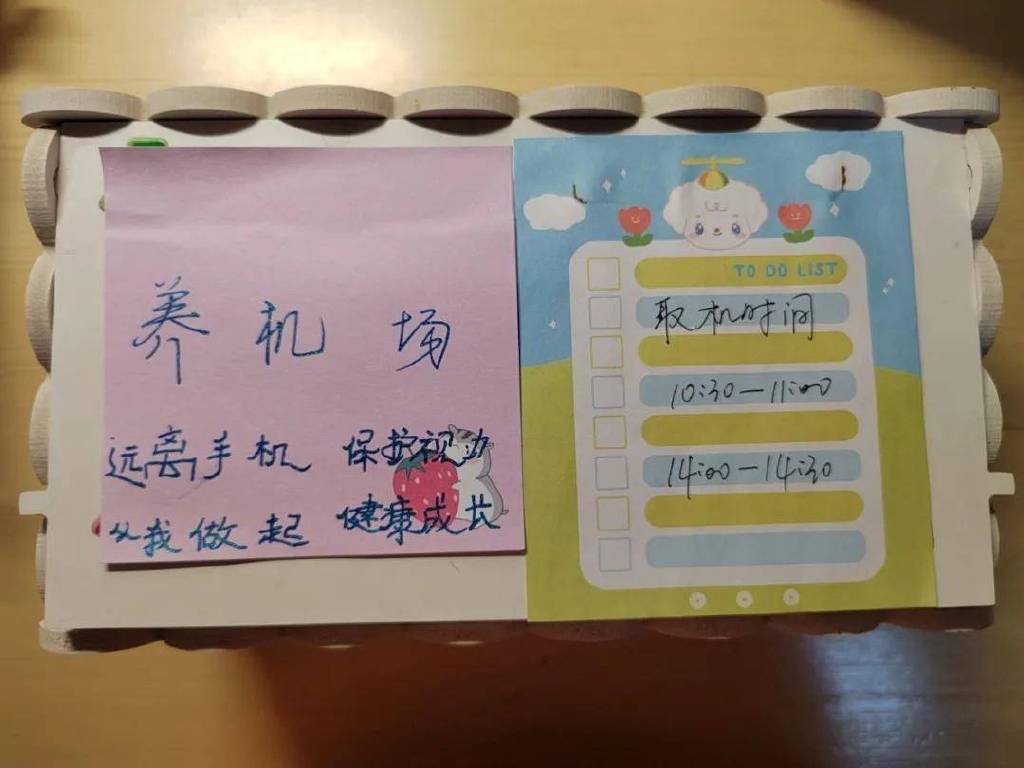 养机场
远离手机 保护视力
从我做起 健康成长
TO DO LIST
取机时间
10:30—11:00
14:00—14:30